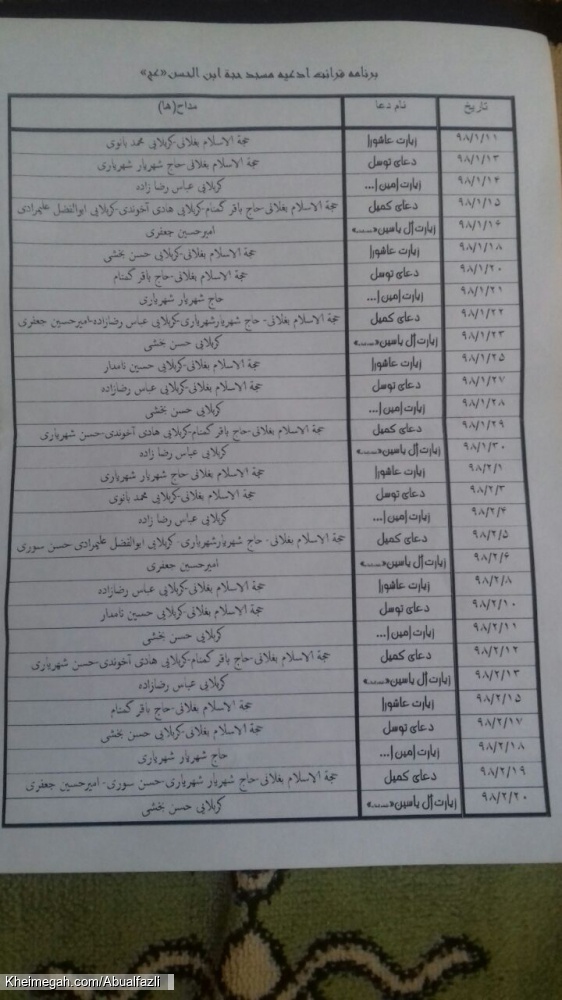 برنامه قرائت ادعیه مسجد حجة ابن الحسن «عج»
تاریخ نام دعا مداح(ها)
۹۸/۱/۱۱ زیارت عاشورا حجة الاسلام بغلانی-کربلایی محمد بانوی
۹۸/۱/۱۳ دعای توسل حجة الاسلام بغلانی-حاج شهریار شهریاری
۹۸/۱/۱۴ زیارت امین ا... کربلایی عباس رضا زاده
۹۸/۱/۱۵ دعای کمیل حجة الاسلام بغلانی-حاج باقر گمنام-کربلایی هادی آخوندی-کربلایی ابوالفضل علیمرادی
۹۸/۱/۱۶ زیارت آل یاسین امیرحسین جعفری
۹۸/۱/۱۸ زیارت عاشورا حجة الاسلام بغلانی-کربلایی حسن بخشی
۹۸/۱/۲۰ دعای توسل حجة الاسلام بغلانی-حاج باقر گمنام
۹۸/۱/۲۱ زیارت امین ا... حاج شهریار شهریاری
۹۸/۱/۲۲ دعای کمیل حجة الاسلام بغلانی- حاج شهریارشهریاری-کربلایی عباس رضازاده-امیرحسین جعفری
۹۸/۱/۲۳ زیارت آل یاسین کربلایی حسن بخشی
۹۸/۱/۲۵ زیارت عاشورا حجة الاسلام بغلانی-کربلایی حسین نامدار
۹۸/۱/۲۷ دعای توسل حجة الاسلام بغلانی-کربلایی عباس رضازاده
۹۸/۱/۲۸ زیارت امین ا... کربلایی حسن بخشی
۹۸/۱/۲۹ دعای کمیل حجة الاسلام بغلانی-حاج باقر گمنام-کربلایی هادی آخوندی-حسن شهریاری
۹۸/۱/۳۰ زیارت آل یاسین کربلایی عباس رضا زاده
۹۸/۲/۱ زیارت عاشورا حجة الاسلام بغلانی-حاج شهریار شهریاری
۹۸/۲/۳ دعای توسل حجة الاسلام بغلانی-کربلایی محمد بانوی
۹۸/۲/۴ زیارت امین ا... کربلایی عباس رضا زاده
۹۸/۲/۵ دعای کمیل حجة الاسلام بغلانی- حاج شهریارشهریاری- کربلایی ابوالفضل علیمرادی-حسن سوری
۹۸/۲/۶ زیارت آل یاسین امیرحسین جعفری
۹۸/۲/۸ زیارت عاشورا حجة الاسلام بغلانی-کربلایی عباس رضازاده
۹۸/۲/۱۰ دعای توسل حجة الاسلام بغلانی-کربلایی حسین نامدار
۹۸/۲/۱۱ زیارت امین ا... کربلایی حسن بخشی
۹۸/۲/۱۲ دعای کمیل حجة الاسلام بغلانی-حاج باقر گمنام-کربلایی هادی آخوندی-حسن شهریاری
۹۸/۲/۱۳ زیارت آل یاسین کربلایی عباس رضازاده
۹۸/۲/۱۵ زیارت عاشورا حجة الاسلام بغلانی-حاج باقر گمنام
۹۸/۲/۱۷ دعای توسل حجة الاسلام بغلانی-کربلایی حسن بخشی
۹۸/۲/۱۸ زیارت امین ا... حاج شهریار شهریاری
۹۸/۲/۱۹ دعای کمیل حجة الاسلام بغلانی-حاج شهریار شهریاری-حسن سوری- امیرحسین جعفری
۹۸/۲/۲۰ زیارت آل یاسین کربلایی حسن بخشی
Kheimegah.com/Abualfazli